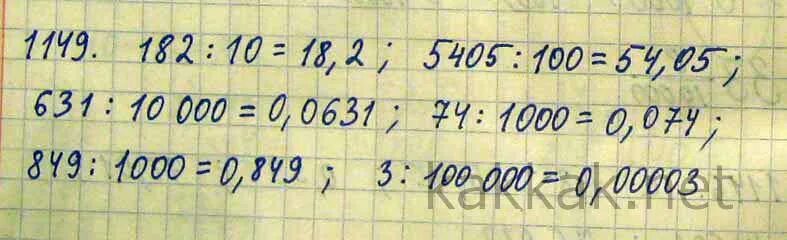 1149. 182 : 10 = 18,2 ; 5405 : 100 = 54,05 ;
631 : 10 000 = 0,0631 ; 74 : 1000 = 0,074 ;
849 : 1000 = 0,849 ; 3 : 100 000 = 0,00003
kakkak.net